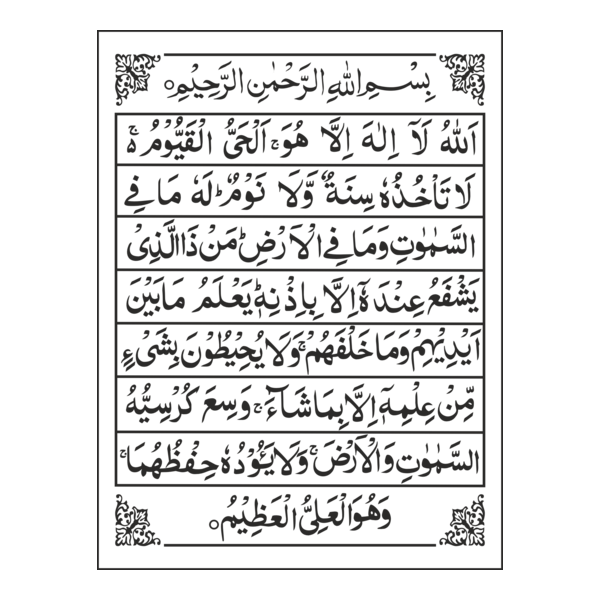 بِسْمِ اللهِ الرَّحْمٰنِ الرَّحِيْمِ ○
اَللهُ لَآ اِلٰهَ اِلَّا هُوَ ۚ اَلْحَيُّ الْقَيُّوْمُ ۵ ۚ
لَا تَاْخُذُهٗ سِنَةٌ وَّلَا نَوْمٌ ؕ لَهٗ مَا فِي
السَّمٰوٰتِ وَمَا فِي الْاَرْضِ ؕ مَنْ ذَا الَّذِيْ
يَشْفَعُ عِنْدَهٗٓ اِلَّا بِاِذْنِهٖ ؕ يَعْلَمُ مَا بَيْنَ
اَيْدِيْهِمْ وَمَا خَلْفَهُمْ ۚ وَلَا يُحِيْطُوْنَ بِشَيْءٍ
مِّنْ عِلْمِهٖٓ اِلَّا بِمَا شَآءَ ۚ وَسِعَ كُرْسِيُّهُ
السَّمٰوٰتِ وَالْاَرْضَ ۚ وَلَا يَـُٔوْدُهٗ حِفْظُهُمَا ۚ
وَهُوَ الْعَلِيُّ الْعَظِيْمُ ○